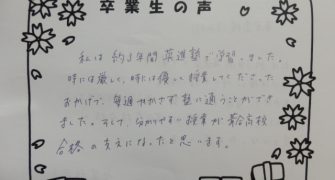 卒業生の声
私は約1年間英進塾で学習しました。
時には厳しく、時には優しく授業してくださった
おかげで、毎週欠かさず塾に通うことができ
ました。そして、分かりやすい授業が 高校
合格の支えになったと思います。